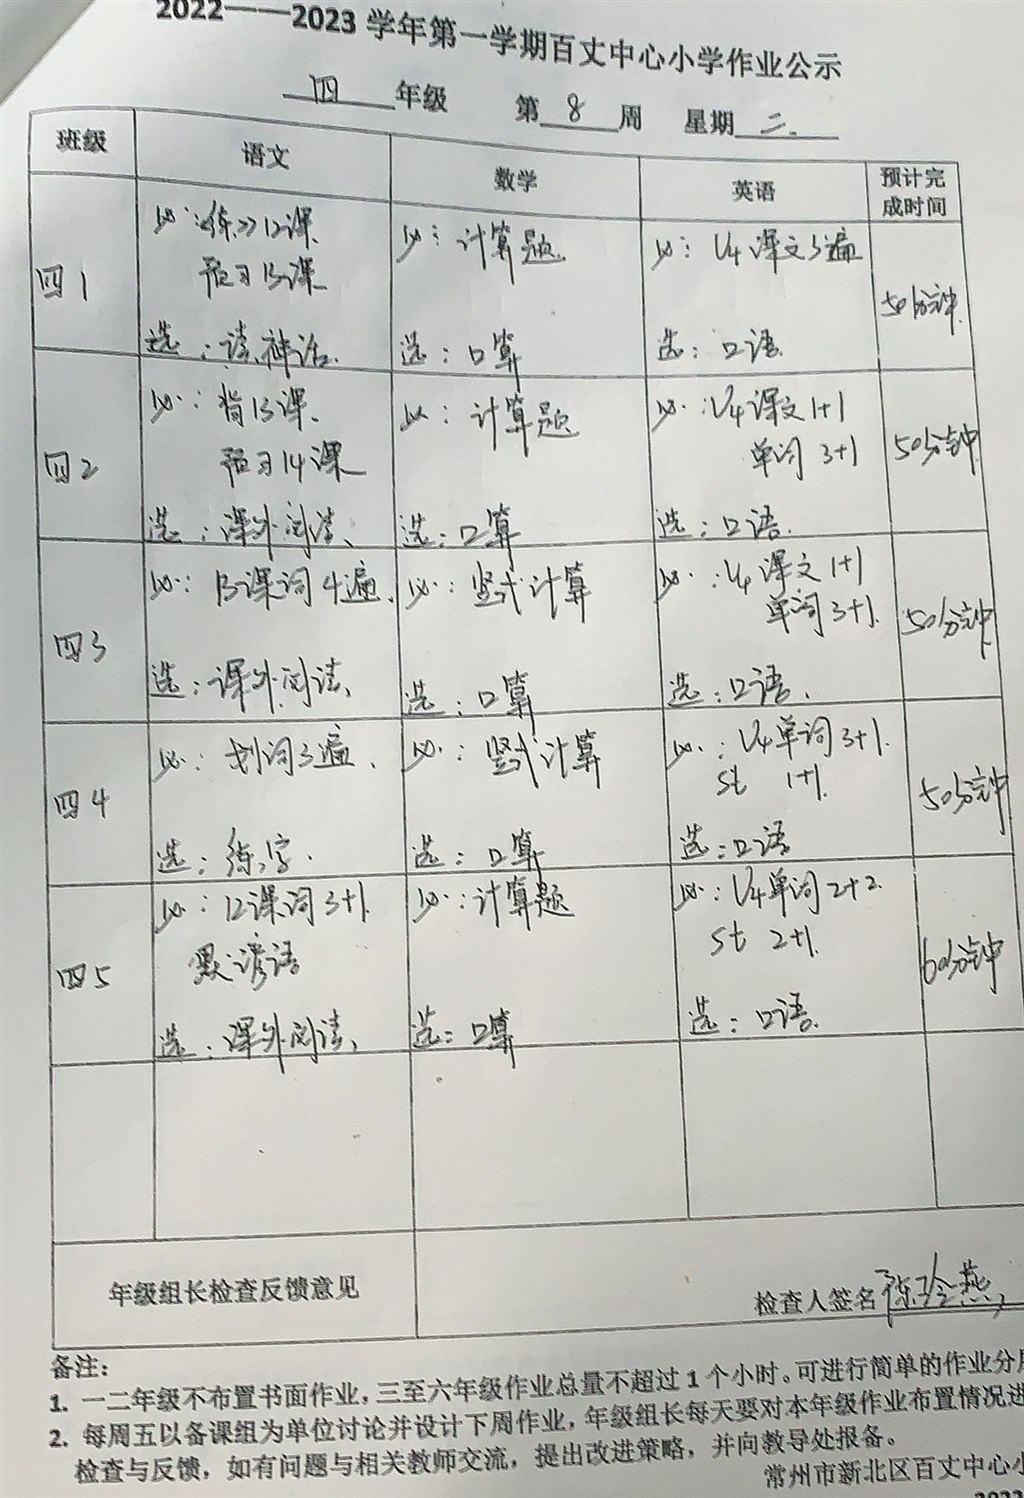 2022——2023 学年第一学期百丈中心小学作业公示
四 年级 第 8 周 星期 二
班级 语文 数学 英语 预计完成时间
四1
必：《练》12课
预习13课
选：读神话
必：计算题
选：口算
必：U4 课文3遍
选：口语
50分钟
四2
必：背13课
预习14课
选：课外阅读
必：计算题
选：口算
必：U4课文1+1
单词 3+1
选：口语
50分钟
四3
必：13课词4遍
选：课外阅读
必：竖式计算
选：口算
必：U4 课文 1+1
单词 3+1
选：口语
50分钟
四4
必：划词3遍
选：练字
必：竖式计算
选：口算
必：U4单词 3+1
st 1+1
选：口语
50分钟
四5
必：12课词 3+1
默谚语
选：课外阅读
必：计算题
选：口算
必：U4单词 2+2
st 2+1
选：口语
60分钟
年级组长检查反馈意见
检查人签名 陈玲燕
备注：
1. 一二年级不布置书面作业，三至六年级作业总量不超过 1 个小时。可进行简单的作业分
2. 每周五以备课组为单位讨论并设计下周作业，年级组长每天要对本年级作业布置情况进
检查与反馈，如有问题与相关教师交流，提出改进策略，并向教导处报备。
常州市新北区百丈中心小